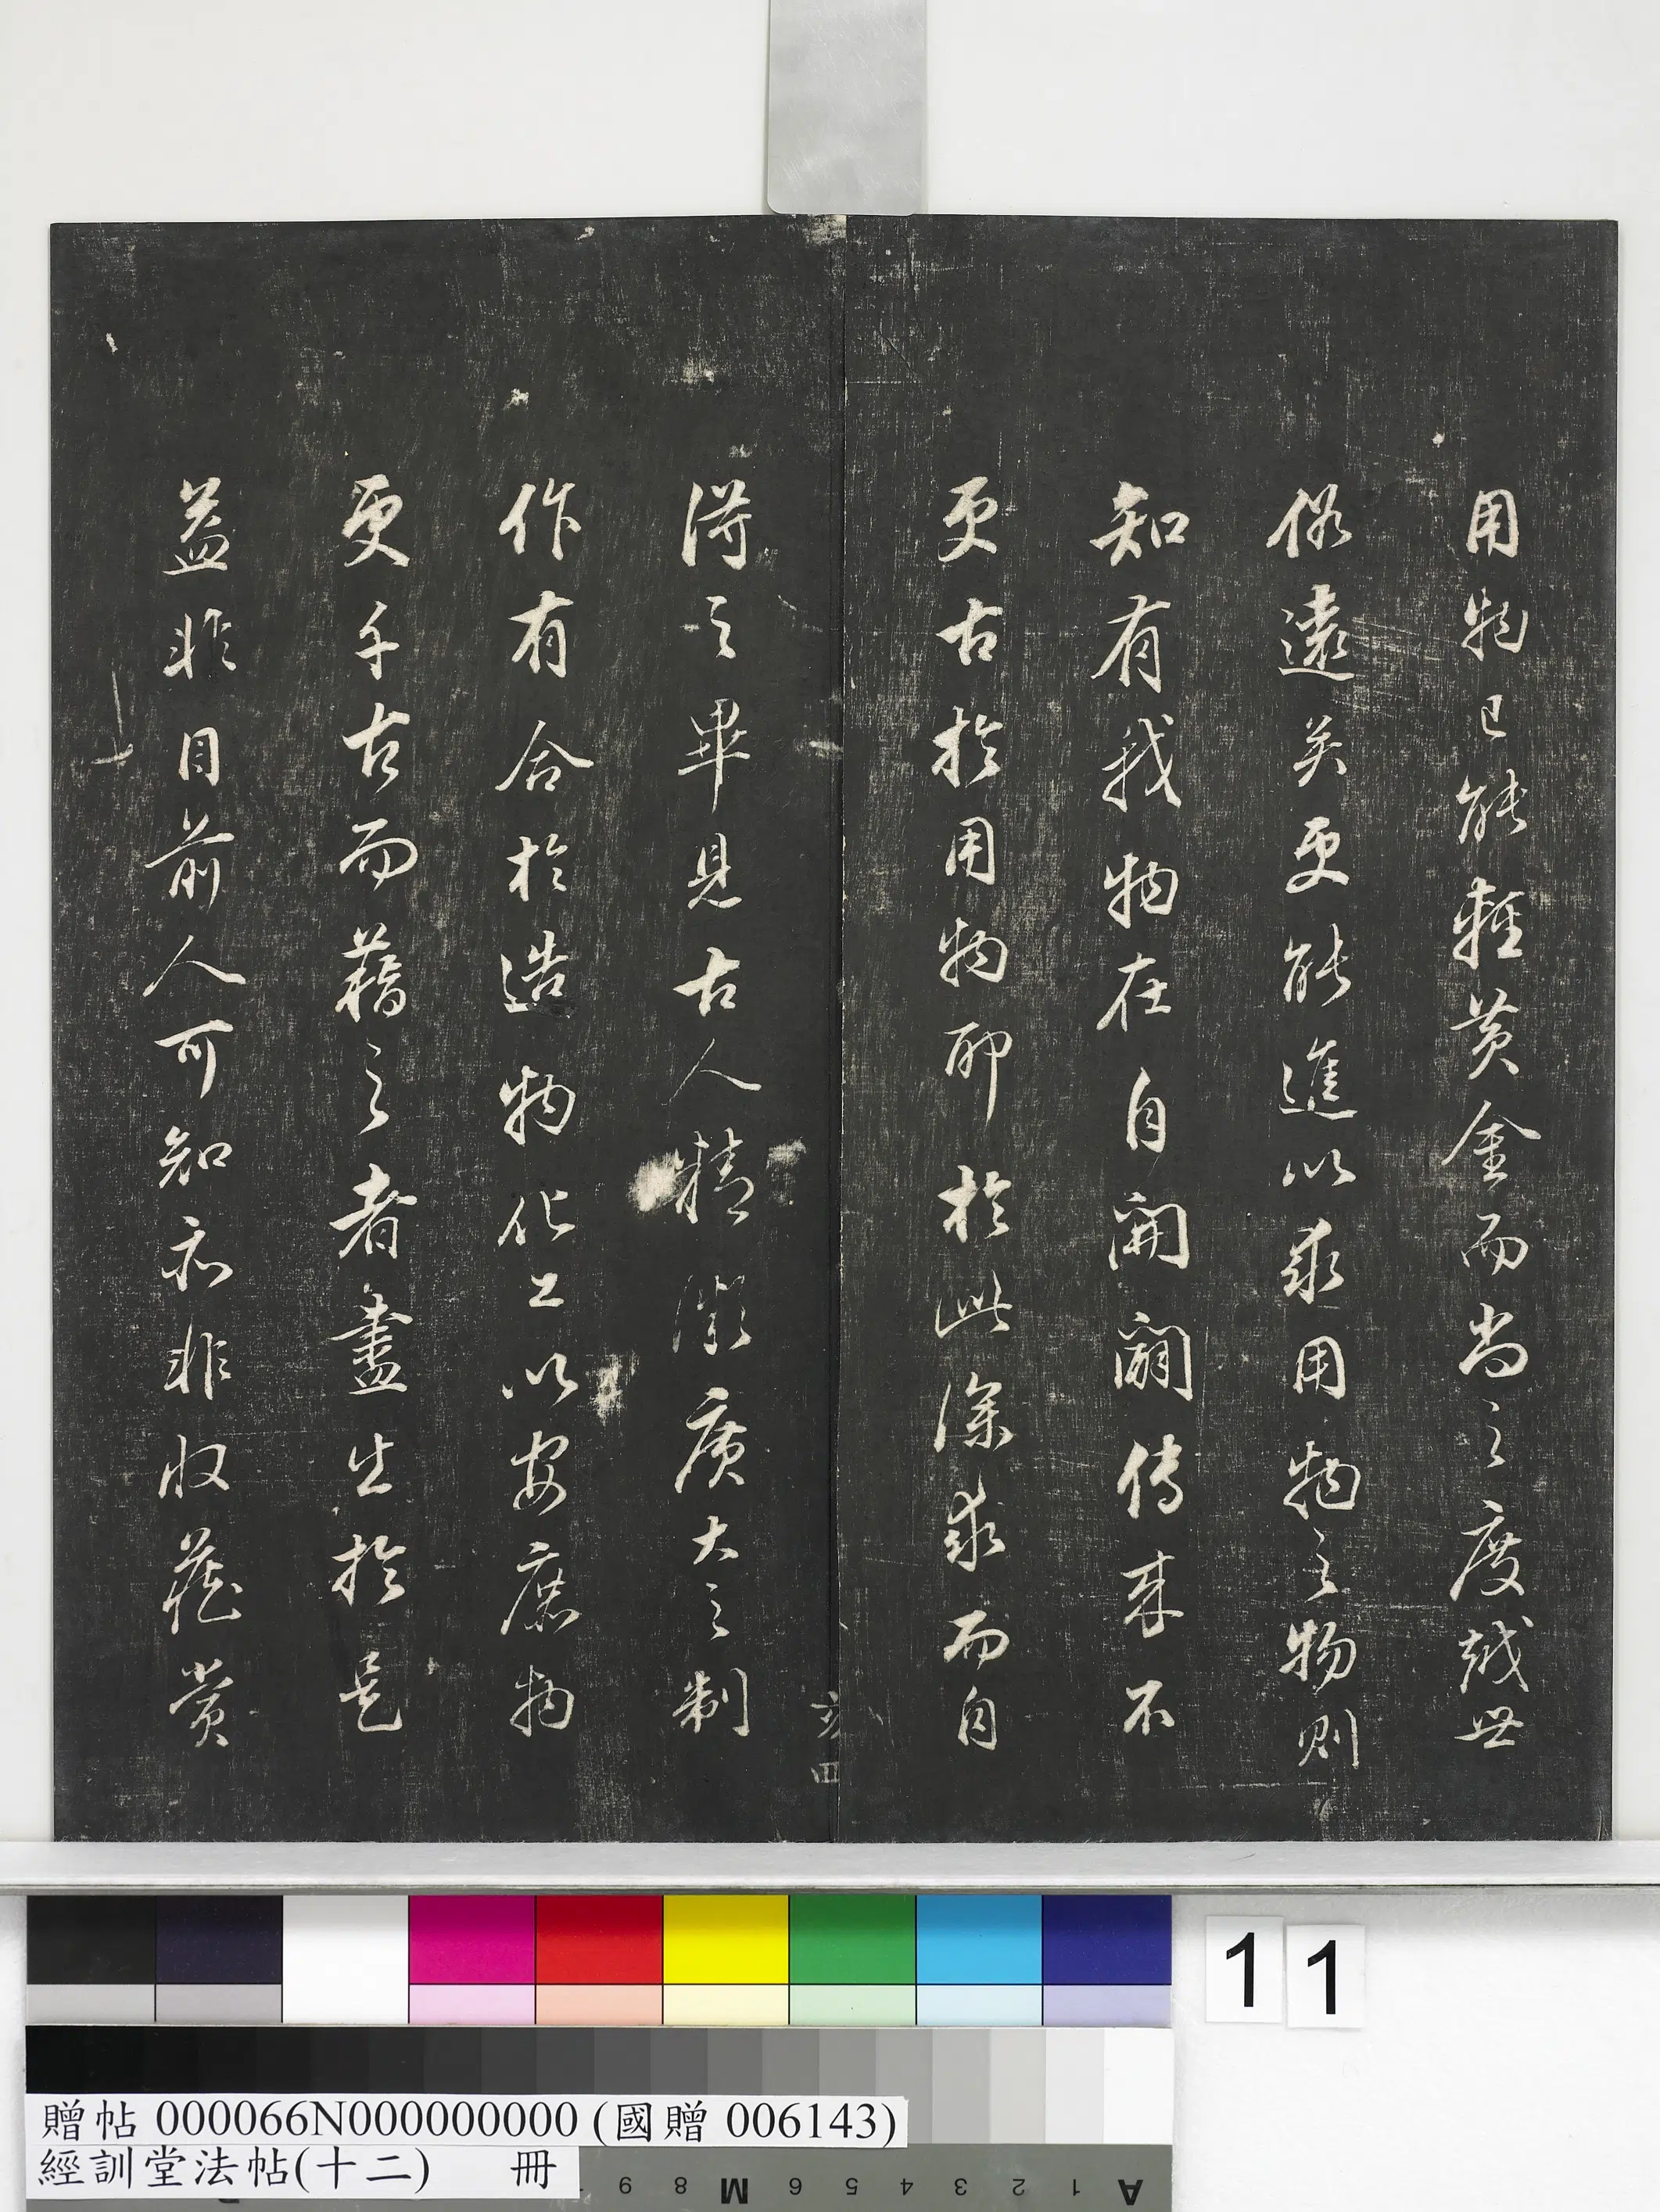 用物已能輕黃金而尚之度越世
俗遠矣更能進以求用物之物則
知有我物在自開闢傳來不
更古於用物耶於此深求而自
得之畢見古人精微廣大之制
作有合於造物化工以安庶物
更千古而藉之者盡生於是
益非目前人可知亦非收藏賞
亥四
11
贈帖 000066N000000000 (國贈 006143)
經訓堂法帖(十二) 冊
9 8 M 6 5 4 3 2 1 A